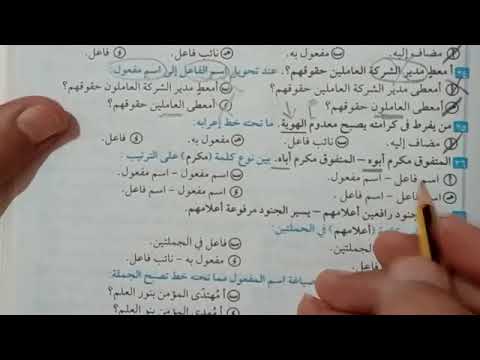 أ مضاف إليه. ب مفعول به. ج نائب فاعل. د فاعل.
٢٤ أ معط مدير الشركة العاملين حقوقهم؟. عند تحويل اسم الفاعل إلى اسم مفعول:
أ أ معطى مدير الشركة العاملين حقوقهم؟ ب أ معط مدير الشركة العاملون حقوقهم؟
ج أ معطى العاملون حقوقهم؟ د أ معطى العاملين حقوقهم؟
٢٥ من يفرط فى كرامته يصبح معدوم الهوية. ما تحته خط إعرابه.
أ مضاف إليه. ب نائب فاعل. ج مفعول به. د فاعل.
٢٦ المتفوق مكرم أبوه – المتفوق مكرم أباه. بين نوع كلمة (مكرم) على الترتيب :
أ اسم فاعل – اسم مفعول. ب اسم مفعول – اسم مفعول.
ج اسم فاعل – اسم فاعل. د اسم مفعول – اسم فاعل.
جنود رافعين أعلامهم – يسير الجنود مرفوعة أعلامهم.
(أعلامهم) في الجملتين:
فاعل في الجملتين.
فاعل. د مفعول به – نائب فاعل.
صياغة اسم المفعول مما تحته خط تصبح الجملة:
ب أ مُهتدَى المؤمن بنور العلم؟
المؤمن بنور العلم؟